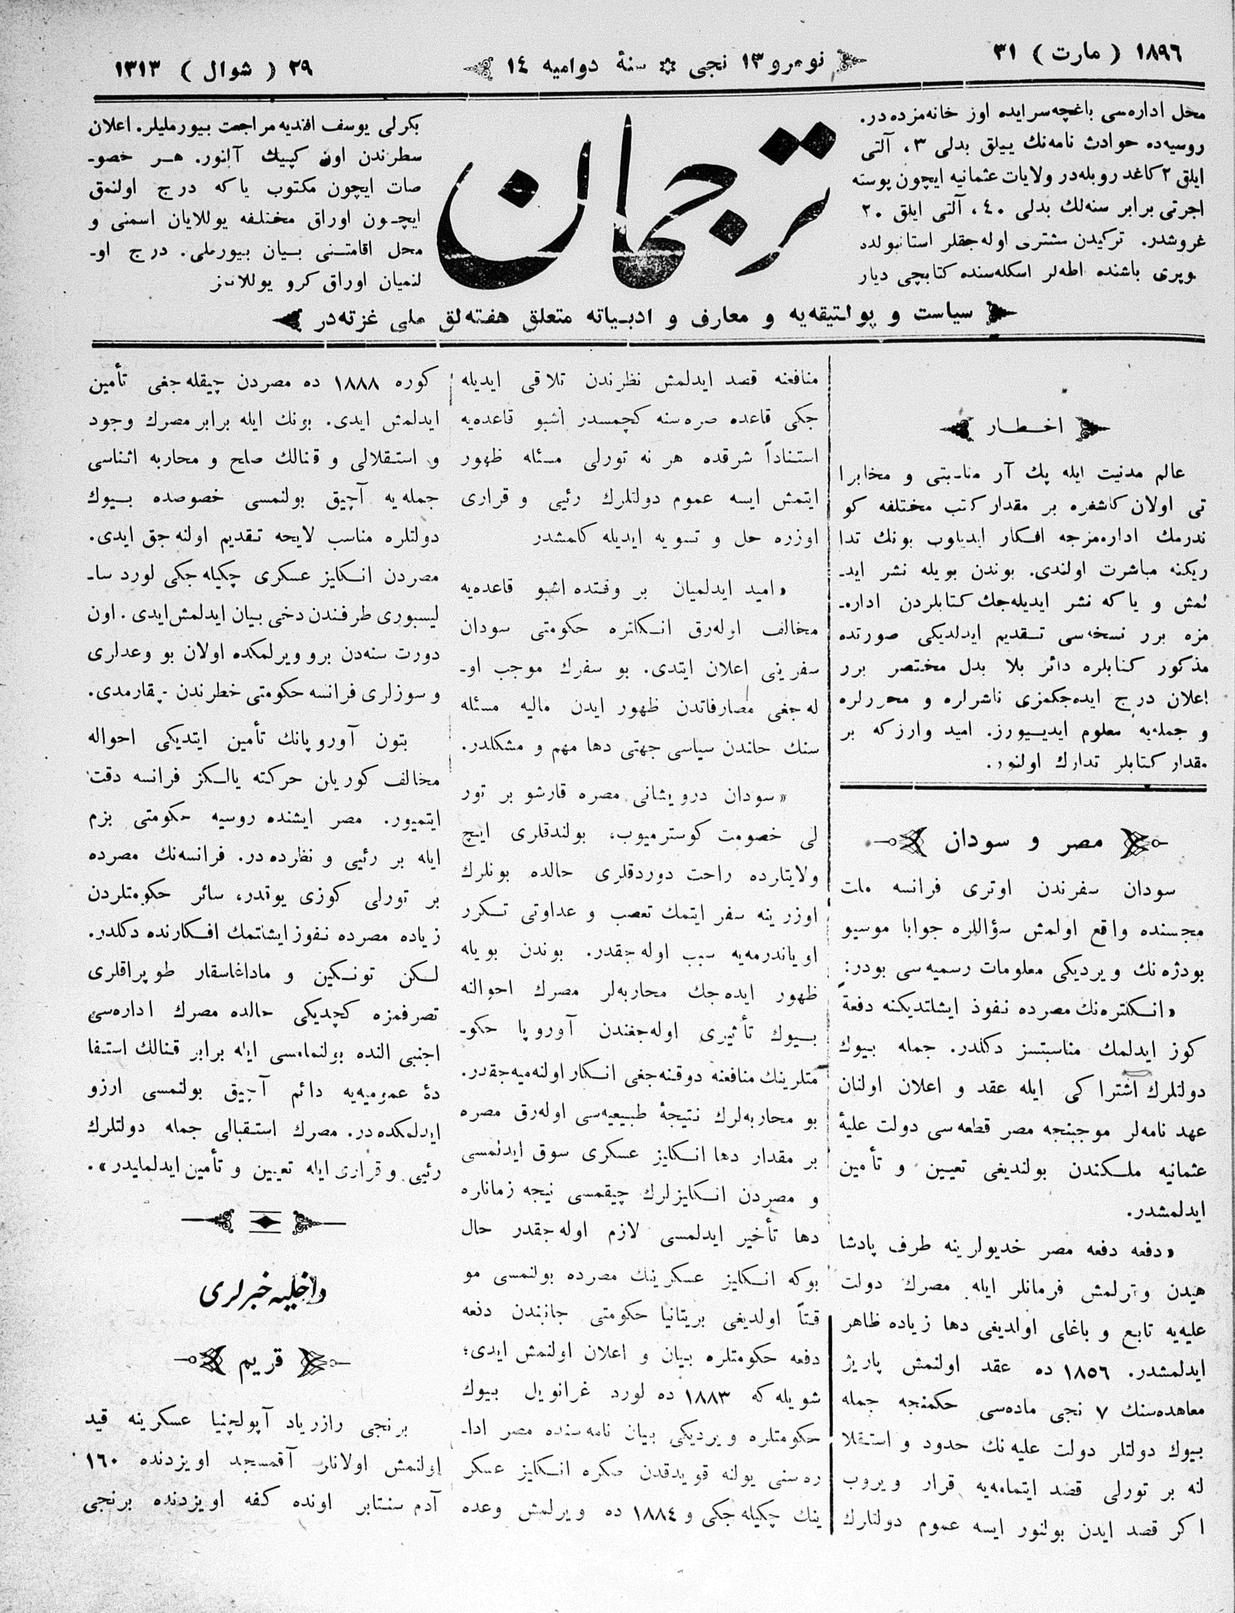 ١٨٩٦ ( مارت ) ٣١
نومرو ١٣ نجی ✲ سنهٔ دوامیه ١٤
٢٩ ( شوال ) ١٣١٣
محل اداره‌سی باغچه‌سرایده اوز خانه‌مزده‌در.
روسیه‌ده حوادث نامه‌نك ییللق بدلی ٣، آلتی
ایلق ٢ كاغد روبله‌در ولایات عثمانیه ایچون پوسته
اجرتی برابر سنه‌لك بدلی ٤٠، آلتی ایلق ٢٠
غروشدر. تركیدن مشتری اوله‌جقلر استانبولده
كوپری باشنده اطه‌لر اسكله‌سنده كتابچی دیار
ترجمان
بكرلی یوسف افندیه مراجعت بیورملیلر. اعلان
سطرندن اون كپیك آلنور. هـر خصو-
صات ایچون مكتوب یاكه درج اولنمق
ایچـون اوراق مختلفه یوللایان اسمنی و
محل اقامتـنی بـیان بیورملی. درج او-
لنمیان اوراق كرو یوللانمز
سیاست و پولتیقه‌یه و معارف و ادبـیاته متعلق هفته‌لق ملی غزته‌در
اخـطار
عالم مدنیت ایله پك آز مناسبتی و مخابرا
تی اولان كاشغره بر مقدار كتب مختلفه كو
ندرمك اداره‌مزجه افـكار ایدیلوب بونك تدا
ریكنه مباشرت اولندی. بوندن بویله نشر ایدـ
لمش و یاكه نشر ایدیله‌جك كتابلردن اداره-
مزه برر نسخه‌سی تـقدیم ایدلدیكی صورتده
مذكور كتابلره دائر بلا بدل مختصر برر
اعلان درج ایده‌جكمزی ناشرلره و محررلره
و جمله‌یه معلوم ایدیـیورز. امید وارزكه بر
مقدار كتابلر تدارك اولنور.
مصر و سودان
سودان سفرندن اوتری فرانسه ملت
مجلسنده واقع اولمش سؤاللره جوابا موسیو
بورژه‌نك ویردیكی معلومات رسمیه‌سی بودر:
«انـكلتره‌نك مصرده نفوذ ایشلتدیكنه دفعةً
كوز ایدلمك مناسبتسز دكلدر. جمله بیوك
دولتلرك اشتراكی ایله عقد و اعلان اولنان
عهد نامه‌لر موجبنجه مصر قطعه‌سی دولت علیهٔ
عثمانیه ملـكندن بولندیغی تعیین و تأمین
ایدلمشدر.
«دفعه دفعه مصر خدیولرینه طرف پادشا
هیدن ویرلمش فرمانلر ایله مصرك دولت
علیه‌یه تابع و باغلی اولدیغی دها زیاده ظاهر
ایدلمشدر. ١٨٥٦ ده عقد اولنمش پاریژ
معاهده‌سنك ٧ نجی ماده‌سی حكمنجه جمله
بیوك دولتلر دولت علیه‌نك حدود و استقلا
لنه بر تورلی قصد ایتمامه‌یه قرار ویروب
اكر قصد ایدن بولنور ایسه عموم دولتلرك
منافعنه قصد ایدلمش نظرندن تلاقی ایدیله
جكی قاعده صره‌سنه كچمسدر اشبو قاعده‌یه
استناداً شرقده هر نه تورلی مسئله ظهور
ایتمش ایسه عموم دولتلرك رئیی و قراری
اوزره حل و تسویه ایدیله كلمشدر
«امید ایدلمیان بر وقتده اشبو قاعده‌یه
مخالف اوله‌رق انـكلتره حكومتی سودان
سفرینی اعلان ایتدی. بو سفرك موجب اوـ
له‌جغی مصارفاتدن ظهور ایدن مالیه مسئله
سنك حلندن سیاسی جهتی دها مهم و مشكلدر.
«سودان درویشانی مصره قارشو بر تور
لی خصومت كوسترمیوب، بولندقلری ایـچ
ولایتلرده راحت دوردقلری حالده بونلرك
اوزرینه سفر ایتمك تعصب و عداوتی تـكرر
اویاندرمه‌یه سبب اوله‌جقدر. بوندن بویله
ظهور ایده‌جك محاربه‌لر مصرك احوالنه
بـیوك تأثیری اوله‌جغندن آوروپا حكوـ
متلرینك منافعنه دوقنه‌جغی انـكار اولنه‌میه‌جقدر.
بو محاربه‌لرك نتیجهٔ طبیعیه‌سی اوله‌رق مصره
بر مقدار دها انـكلیز عسكری سوق ایدلمسی
و مصردن انـكلیزلرك چیقمسی نیجه زمانلره
دها تأخیر ایدلمسی لازم اوله‌جقدر حال
بوكه انـكلیز عسكرینك مصرده بولنمسی مو
قتاً اولدیغی بریتانیا حكومتی جانبندن دفعه
دفعه حكومتلره بیان و اعلان اولنمش ایدی؛
شویله‌كه ١٨٨٣ ده لورد غرانویل بیوك
حكومتلره ویردیكی بیان نامه‌سنده مصر اداـ
ره‌سنی یولنه قویدقدن صكره انـكلیز عسكر
ینك چكیله‌جكی و ١٨٨٤ ده ویرلمش وعده
كوره ١٨٨٨ ده مصردن چیقله‌جغی تأمین
ایدلمش ایدی. بونك ایله برابر مصرك وجود
و استـقلالی و قنالك صلح و محاربه اثناسی
جمله‌یه آچیق بولنمسی خصوصده بـیوك
دولتلره مناسب لایحه تـقدیم اولنه‌جق ایدی.
مصردن انـكلیز عسكری چكیله‌جكی لورد ساـ
لیسبوری طرفندن دخی بیان ایدلمش‌ایدی. اون
دورت سنه‌دن برو ویرلمكده اولان بو وعدلری
و سوزلری فرانسه حكومتی خطرندن چقارمدی.
بتون آوروپانك تأمین ایتدیكی احواله
مخالف كوریان حركته یالـكز فرانسه دقت
ایتمیور. مصر ایشنده روسیه حكومتی بزم
ایله بر رئیی و نظرده‌در. فرانسه‌نك مصرده
بر تورلی كوزی یوقدر، سائر حكومتلردن
زیاده مصرده نفوز ایشلتمك افـكارنده دكلدر.
لـكن تونـكین و ماداغاسقار طوپراقلری
تصرفمزه كچدیكی حالده مصرك اداره‌سی
اجنبی النده بولنمامسی ایله برابر قنالك استفا
دهٔ عمومیه‌یه دائم آچیق بولنمسی ارزو
ایدلمكده‌در. مصرك استقبالی جمله دولتلرك
رئیی و قراری ایله تعیین و تأمین ایدلمایدر».
داخلیه خبرلری
قریم
برنجی رازریاد آپولچنیا عسكرینه قید
اولنمش اولانلر آقمسجد اویزدنده ١٦٠
آدم سنتابر اونده كفه اویزدنده برنجی